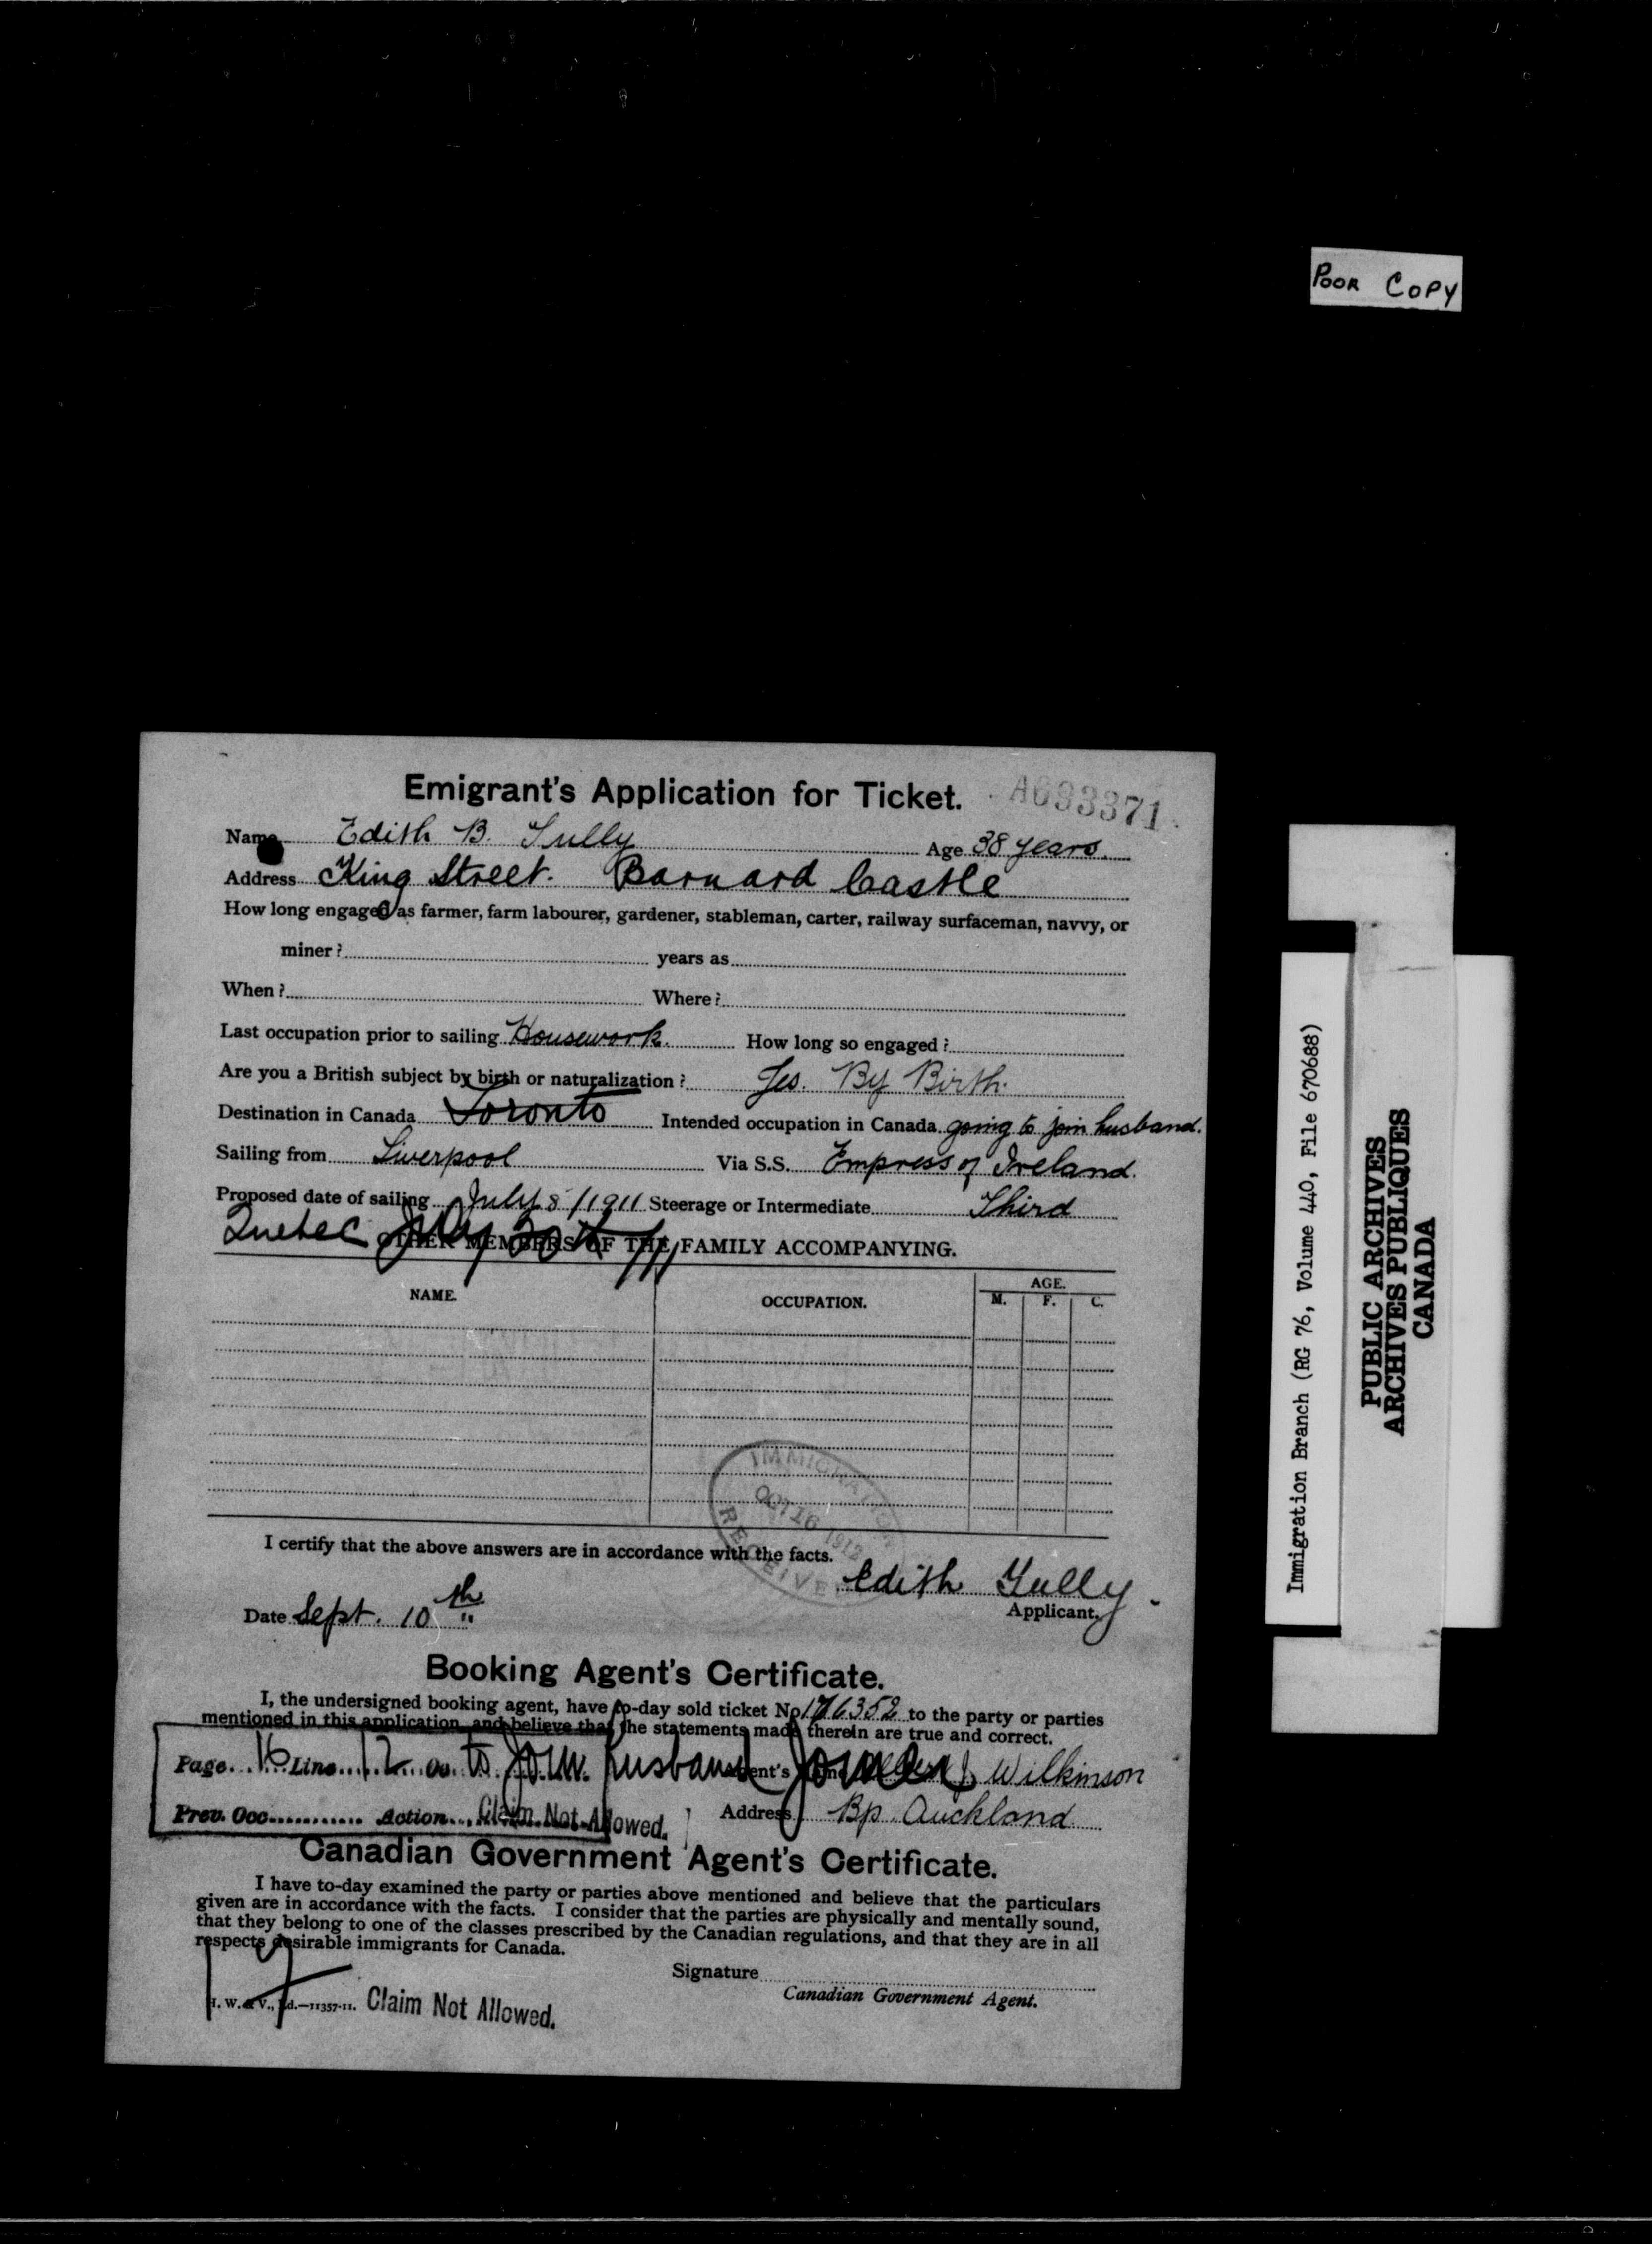 POOR COPY
Emigrant's Application for Ticket. A693371
Name Edith B. Tully Age 38 years
Address King Street. Barnard Castle
How long engaged as farmer, farm labourer, gardener, stableman, carter, railway surfaceman, navvy, or
miner? years as
When? Where?
Last occupation prior to sailing Housework. How long so engaged?
Are you a British subject by birth or naturalization? Yes. By Birth.
Destination in Canada Toronto Intended occupation in Canada going to join husband.
Sailing from Liverpool Via S.S. Empress of Ireland.
Proposed date of sailing July 8/1911 Steerage or Intermediate Third
Quebec
OTHER MEMBERS OF THE FAMILY ACCOMPANYING.
NAME. OCCUPATION. AGE.
M. F. C.
IMMIGRATION
OCT 16 1912
RECEIVED
I certify that the above answers are in accordance with the facts.
Edith Tully.
Applicant.
Date Sept. 10th
Booking Agent's Certificate.
I, the undersigned booking agent, have to-day sold ticket No 176352 to the party or parties
mentioned in this application, and believe that the statements made therein are true and correct.
Page 16 Line 12 Oc. to join husband Wilkinson
Prev. Occ. Action Claim Not Allowed. Address Bp. Auckland
Canadian Government Agent's Certificate.
I have to-day examined the party or parties above mentioned and believe that the particulars
given are in accordance with the facts. I consider that the parties are physically and mentally sound,
that they belong to one of the classes prescribed by the Canadian regulations, and that they are in all
respects desirable immigrants for Canada.
Signature
Canadian Government Agent.
H. W. & V., Ld.—11357-11. Claim Not Allowed.
Immigration Branch (RG 76, Volume 440, File 670688)
PUBLIC ARCHIVES
ARCHIVES PUBLIQUES
CANADA